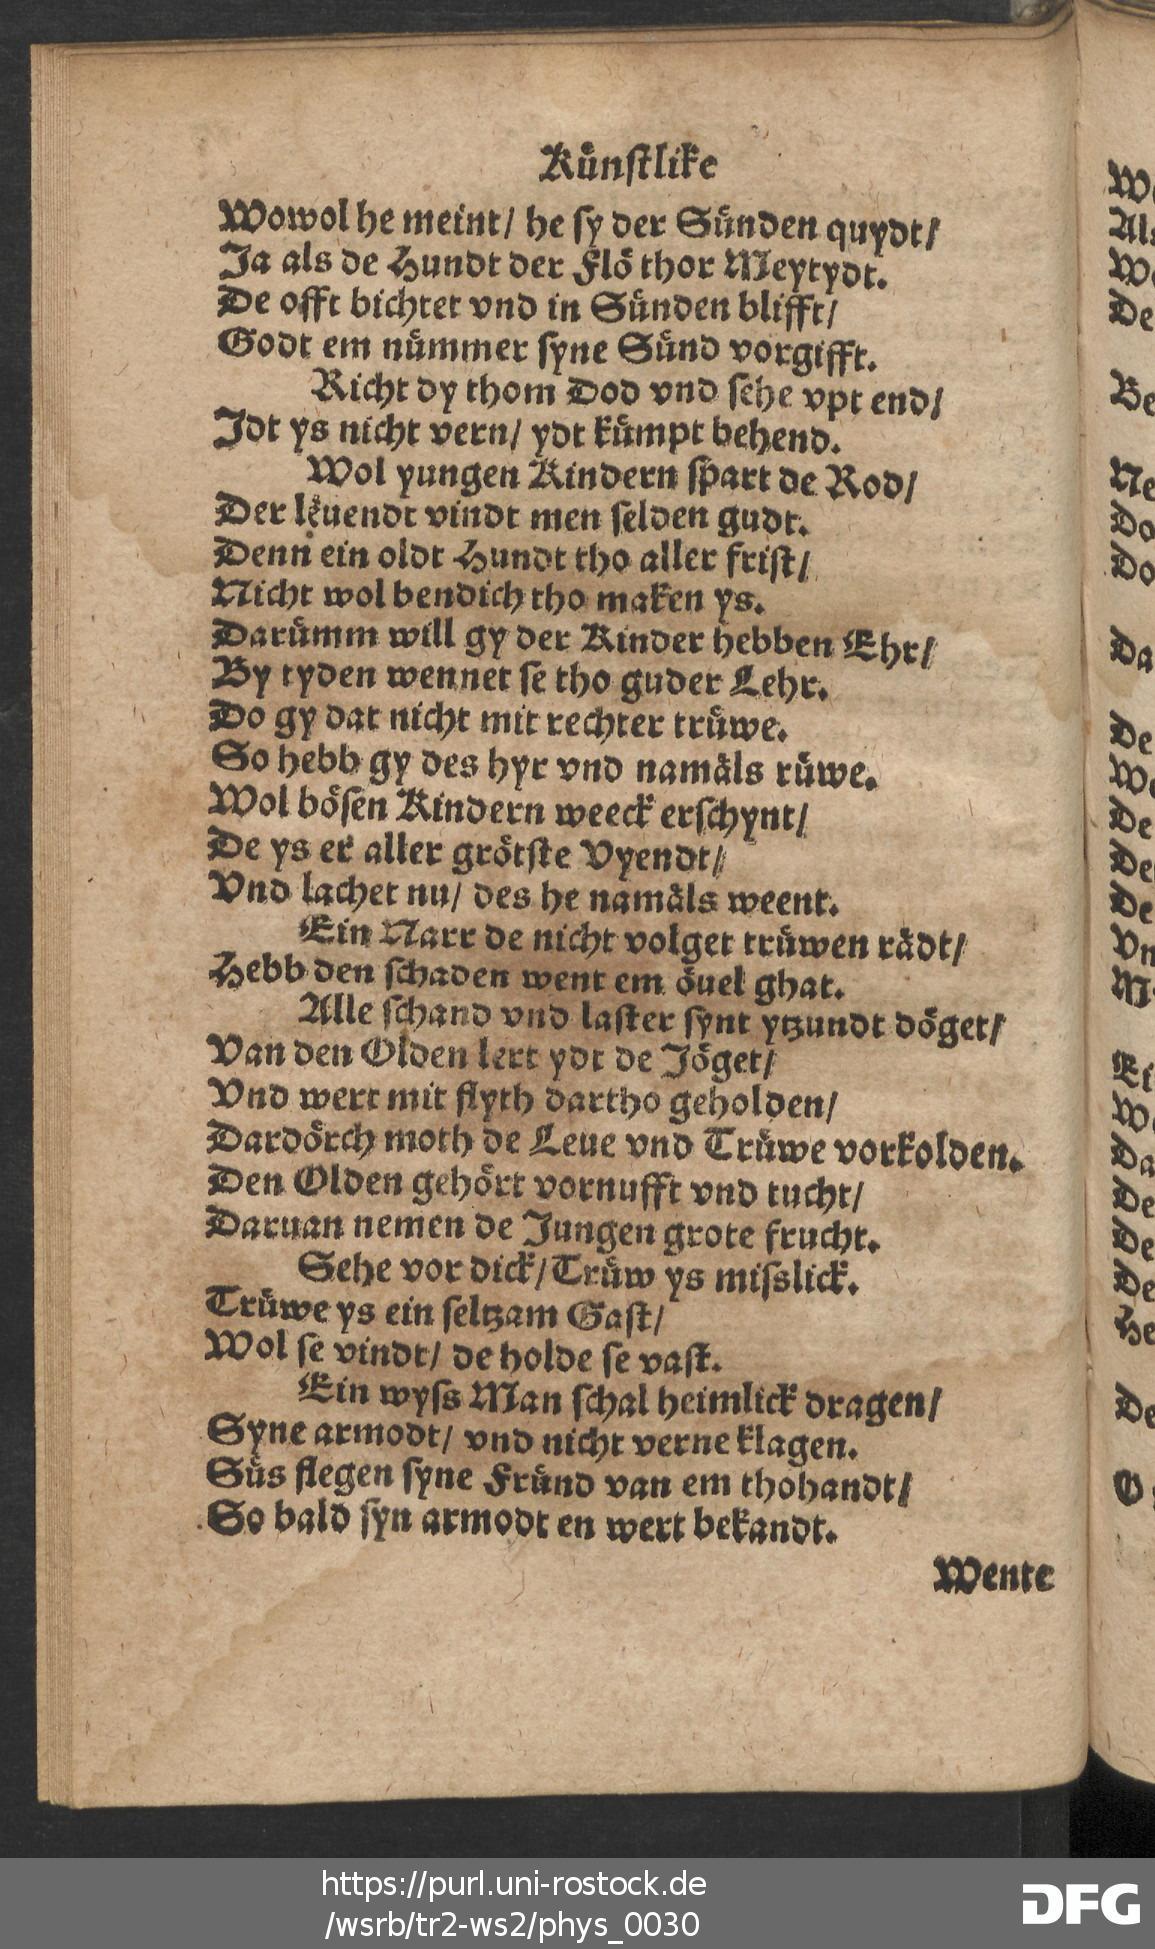 Künstlike
Wowol he meint/ he sy der Sünden quydt/
Ja als de Hundt der Flö thor Meytydt.
De offt bichtet vnd in Sünden blifft/
Godt em nümmer syne Sünd vorgifft.
Richt dy thom Dod vnd sehe vpt end/
Idt ys nicht vern/ ydt kümpt behend.
Wol yungen Kindern spart de Rod/
Der leuendt vindt men selden gudt.
Denn ein oldt Hundt tho aller frist/
Nicht wol bendich tho maken ys.
Darümm will gy der Kinder hebben Ehr/
By tyden wennet se tho guder Lehr.
Do gy dat nicht mit rechter trüwe.
So hebb gy des hyr vnd namåls rüwe.
Wol bösen Kindern weeck erschynt/
De ys er aller grötste Vyendt/
Vnd lachet nu/ des he namåls weent.
Ein Narr de nicht volget trüwen rådt/
Hebb den schaden went em öuel ghat.
Alle schand vnd laster synt ytzundt döget/
Van den Olden lert ydt de Jöget/
Vnd wert mit flyth dartho geholden/
Dardörch moth de Leue vnd Trüwe vorkolden.
Den Olden gehört vornufft vnd tucht/
Daruan nemen de Jungen grote frucht.
Sehe vor dick/ Trüw ys misslick.
Trüwe ys ein seltzam Gast/
Wol se vindt/ de holde se vast.
Ein wyss Man schal heimlick dragen/
Syne armodt/ vnd nicht verne klagen.
Süs flegen syne Fründ van em thohandt/
So bald syn armodt en wert bekandt.
Wente
https://purl.uni-rostock.de
/wsrb/tr2-ws2/phys_0030
DFG